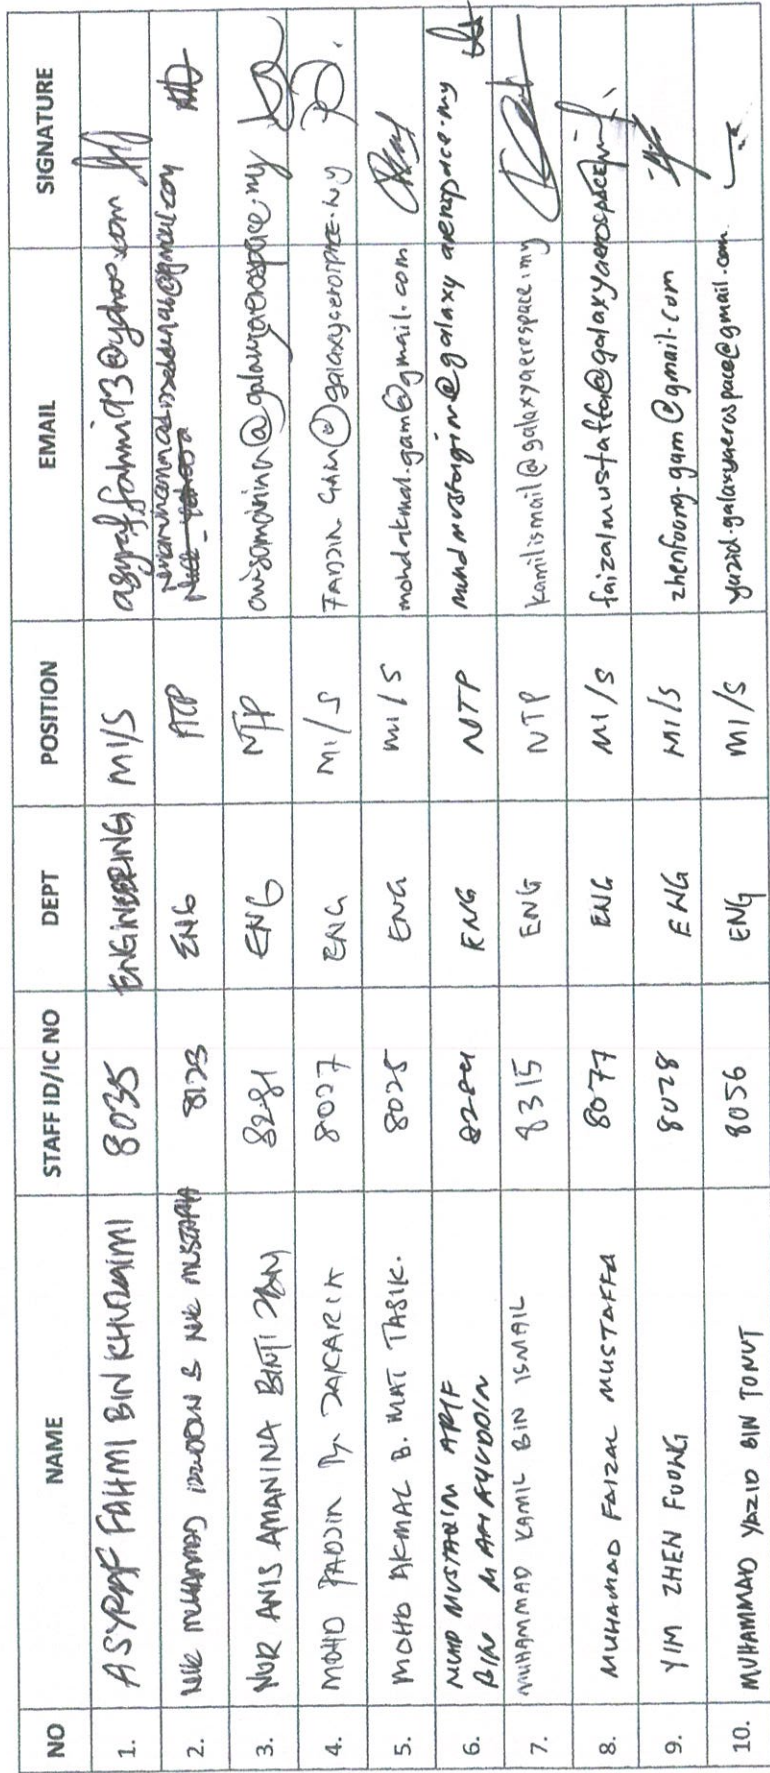 NO NAME STAFF ID/IC NO DEPT POSITION EMAIL SIGNATURE
1. ASYRAF FAHMI BIN KHUZAIMI 8035 ENGINEERING M1/S asyraf.fahmi93@yahoo.com
2. NIK MUHAMMAD IZZUDDIN B NIK MUSTAPHA 8123 ENG
3. NUR ANIS AMANINA BINTI 8281 ENG NTP anisamanina@galaxyaerospace.my
4. MOHD FADZIN B. ZAKARIA 8027 ENG M1/S FADZIN.GAM@galaxyaerospace.my
5. MOHD AKMAL B. MAT TASIK. 8025 ENG M1/S mohdakmal.gam@gmail.com
6. MUHD MUSTAQIM ARIF 8284 ENG NTP muhdmustaqim@galaxyaerospace.my
BIN
7. MUHAMMAD KAMIL BIN ISMAIL 8315 ENG NTP kamilismail@galaxyaerospace.my
8. MUHAMAD FAIZAL MUSTAFFA 8077 ENG M1/S faizalmustaffa@galaxyaerospace.my
9. YIM ZHEN FUONG 8078 ENG M1/S zhenfuong.gam@gmail.com
10. MUHAMMAD YAZID BIN TONUT 8056 ENG M1/S yazid.galaxyaerospace@gmail.com